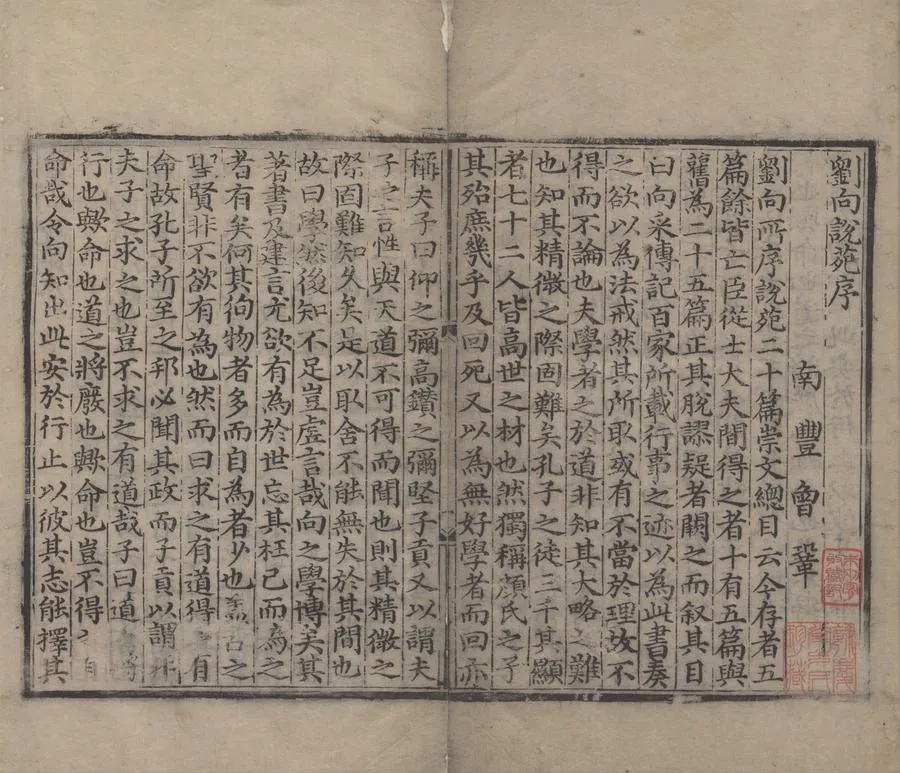 劉向說苑序
南豐曾鞏
劉向所序說苑二十篇崇文總目云今存者五
篇餘皆亡臣從士大夫間得之者十有五篇與
舊為二十五篇正其脫謬疑者闕之而叙其目
曰向采傳記百家所載行事之迹以為此書奏
之欲以為法戒然其所取或有不當於理故不
得而不論也夫學者之於道非知其大略之難
也知其精微之際固難矣孔子之徒三千其顯
者七十二人皆高世之材也然獨稱顏氏之子
其殆庶幾乎及回死又以為無好學者而回亦
稱夫子曰仰之彌高鑽之彌堅子貢又以謂夫
子之言性與天道不可得而聞也則其精微之
際固難知久矣是以取舍不能無失於其間也
故曰學然後知不足豈虛言哉向之學博矣其
著書及建言尤欲有為於世忘其枉己而為之
者有矣何其徇物者多而自為者少也盖古之
聖賢非不欲有為也然而曰求之有道得之有
命故孔子所至之邦必聞其政而子貢以謂非
夫子之求之也豈不求之有道哉子曰道之將
行也歟命也道之將廢也歟命也豈不得之有
命哉令向知出此安於行止以彼其志能擇其